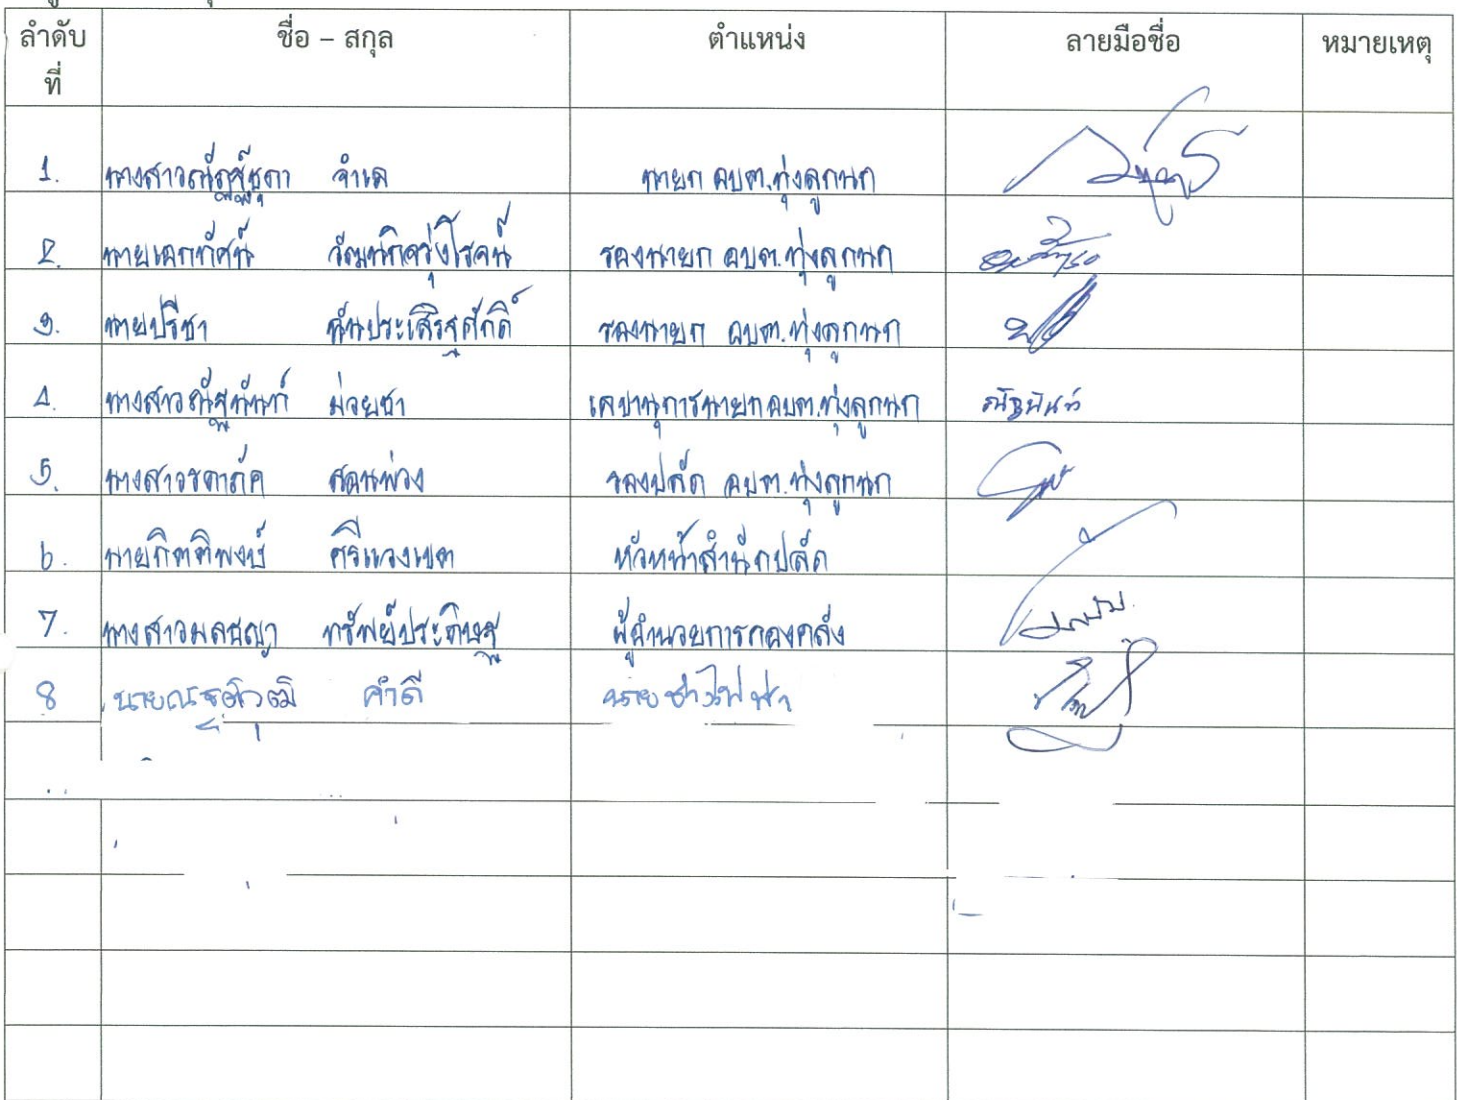 ลำดับ ชื่อ – สกุล ตำแหน่ง ลายมือชื่อ หมายเหตุ
ที่
1. นางสาวณัฏฐ์ชุดา จำเล นายก อบต.ทุ่งลูกนก
2. นายเอกทัศน์ วัฒนกิจรุ่งโรจน์ รองนายก อบต.ทุ่งลูกนก
3. นายปรีชา ตันประเสริฐศักดิ์ รองนายก อบต.ทุ่งลูกนก
4. นางสาวณัฐนันท์ ม่วยชา เลขานุการนายกอบต.ทุ่งลูกนก ณัฐนันท์
5. นางสาวรดาภัค สอนพ่วง รองปลัด อบต.ทุ่งลูกนก
6. นายกิตติพงษ์ ศรีแวงเขต หัวหน้าสำนักปลัด
7. นางสาวมลชญา ทรัพย์ประดิษฐ ผู้อำนวยการกองคลัง
8 นายณฐวุฒิ คำดี นายช่างไฟฟ้า